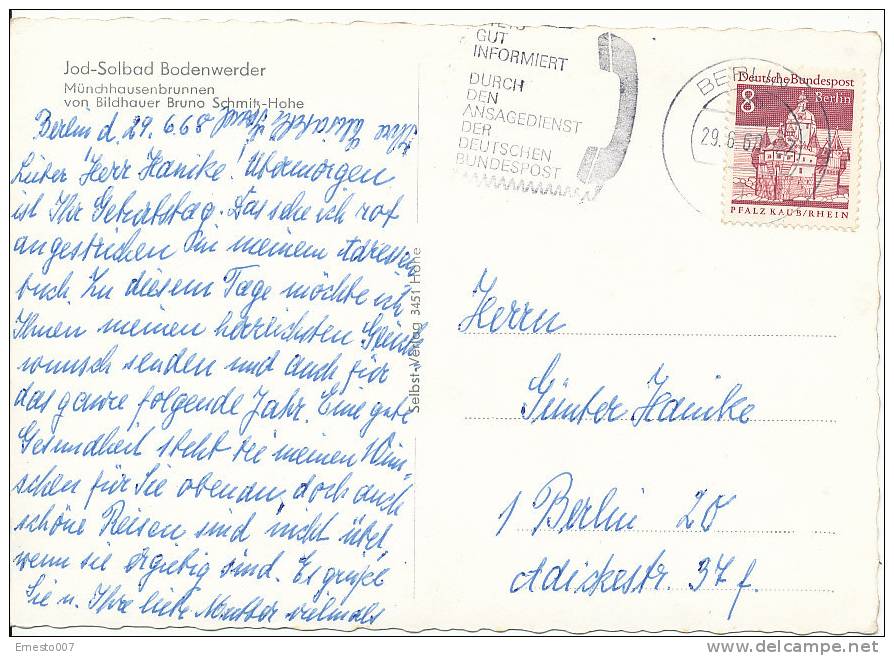 Jod-Solbad Bodenwerder
Münchhausenbrunnen
von Bildhauer Bruno Schmitt-Hohe
Berlin d. 29.6.68
Lieber Herr Hanike! Übermorgen
ist Ihr Geburtstag. Das sehe ich rot
angestrichen in meinem Adressen
buch. Zu diesem Tage möchte ich
Ihnen meinen herzlichsten Glück
wunsch senden und auch für
das ganze folgende Jahr. Eine gute
Gesundheit steht bei meinen Wün-
schen für Sie obenan, doch auch
schöne Reisen sind nicht übel,
wenn sie ergiebig sind. Es grüßt
Sie u. Ihre liebe Mutter vielmals
Selbst-Verlag 3451 Hohe
GUT
INFORMIERT
DURCH
DEN
ANSAGEDIENST
DER
DEUTSCHEN
BUNDESPOST
BERLIN
29.6.67
Deutsche Bundespost
8 Berlin
PFALZ KAUB/RHEIN
Herrn
Günter Hanike
1 Berlin 20
Adickestr. 37 f.
Ernesto007